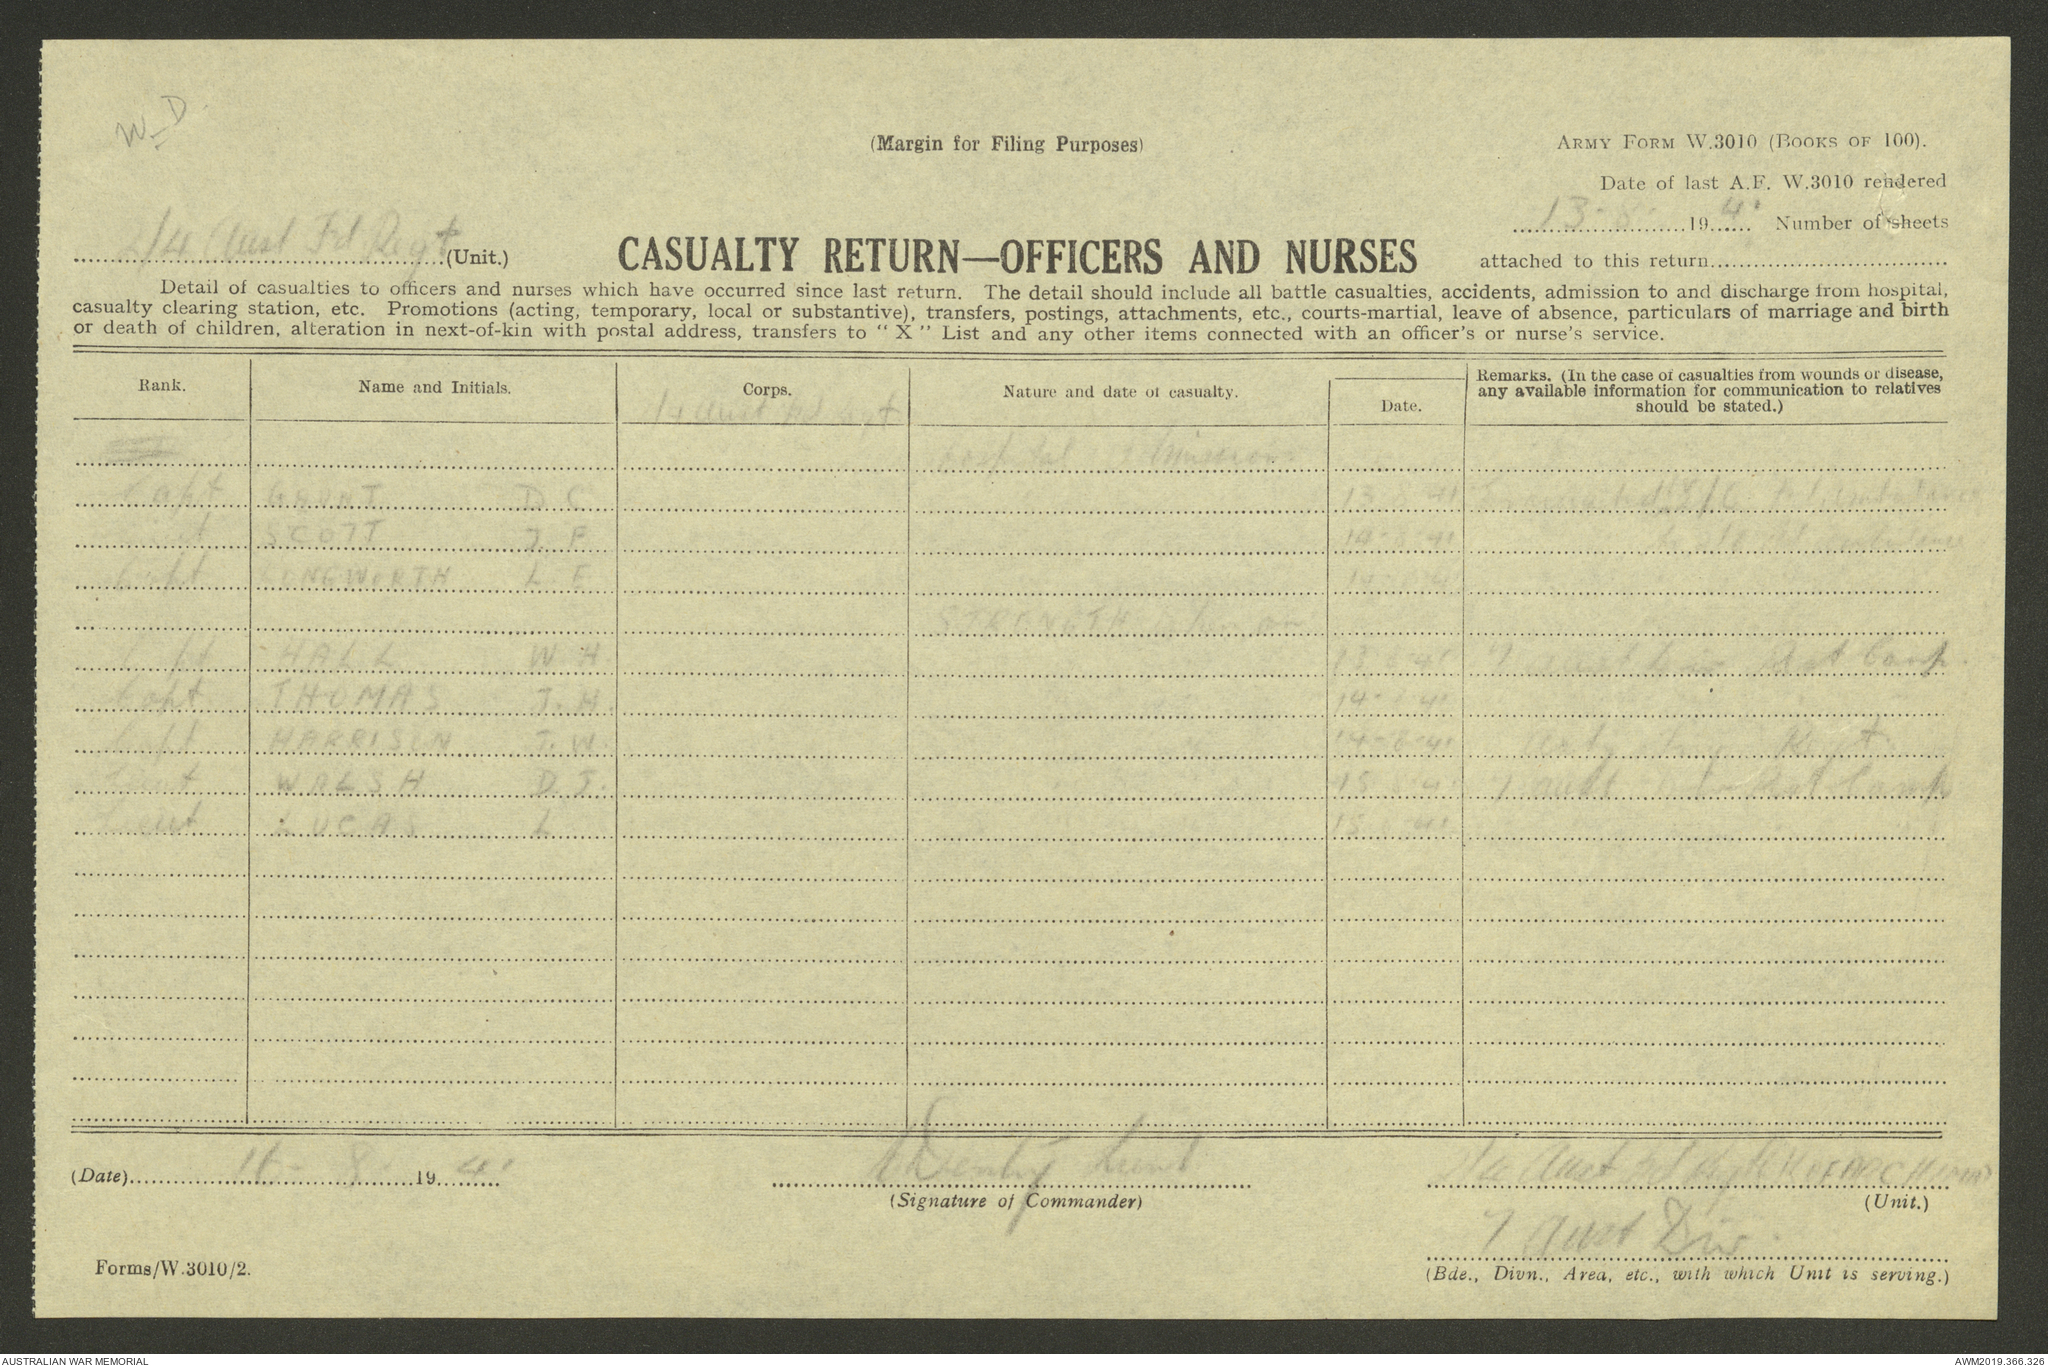 W D
(Margin for Filing Purposes)
ARMY FORM W.3010 (BOOKS OF 100).
Date of last A.F. W.3010 rendered
13-8- 1941 Number of sheets
attached to this return
2/4 Aust Fd Regt (Unit.)
CASUALTY RETURN—OFFICERS AND NURSES
Detail of casualties to officers and nurses which have occurred since last return. The detail should include all battle casualties, accidents, admission to and discharge from hospital,
casualty clearing station, etc. Promotions (acting, temporary, local or substantive), transfers, postings, attachments, etc., courts-martial, leave of absence, particulars of marriage and birth
or death of children, alteration in next-of-kin with postal address, transfers to "X" List and any other items connected with an officer's or nurse's service.
Rank. Name and Initials. Corps. Nature and date of casualty. Date. Remarks. (In the case of casualties from wounds or disease,
any available information for communication to relatives
should be stated.)
2/4 Aust Fd Regt
Hospital Admissions
Capt GAUNT D C 13-8-41 Evacuated Fd Ambulance
SCOTT J F 14-8-41 Fd Ambulance
Capt LONGWORTH L E 14-8-41
STRENGTH
Capt HALL W H 13-8-41 7 Aust Div Rest Camp.
Capt THOMAS J. H. 14-8-41
Capt HARRISON J. W. 14-8-41 Regt
Lieut WALSH D J. 15-8-41 7 Aust Div Rest Camp
Lieut LUCAS L 15-8-41
(Date) 16- 8. 1941
(Signature of Commander)
2/4 Aust Fd Regt
(Unit.)
7 Aust Div.
(Bde., Divn., Area, etc., with which Unit is serving.)
Forms/W.3010/2.
AUSTRALIAN WAR MEMORIAL
AWM2019.366.326